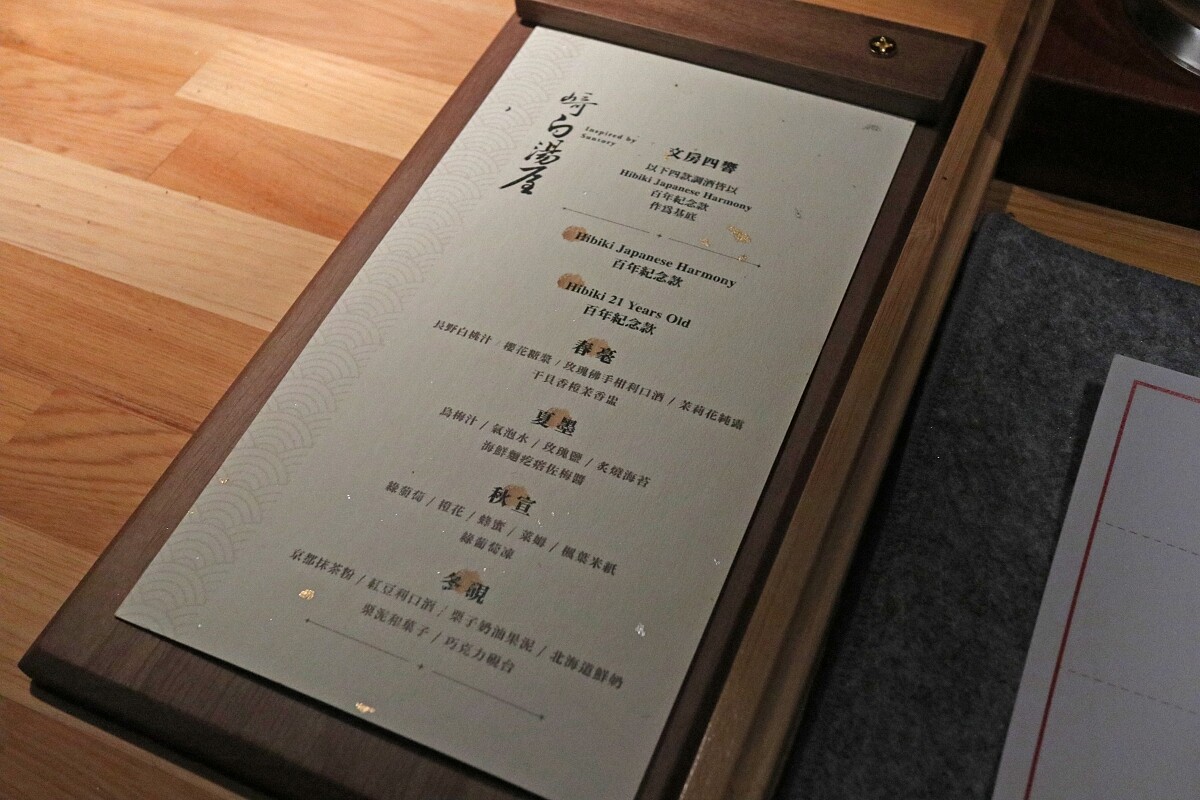 崎白湯屋
Inspired by
Suntory
文房四響
以下四款調酒皆以
Hibiki Japanese Harmony
百年紀念款
作為基底
Hibiki Japanese Harmony
百年紀念款
Hibiki 21 Years Old
百年紀念款
春毫
長野白桃汁 / 櫻花糖漿 / 玫瑰佛手柑利口酒 / 茉莉花純露
干貝香橙茉香盅
夏墨
烏梅汁 / 氣泡水 / 玫瑰鹽 / 炙燒海苔
海鮮麵疙瘩佐梅醬
秋宣
綠葡萄 / 橙花 / 蜂蜜 / 萊姆 / 楓葉米紙
綠葡萄凍
冬硯
京都抹茶粉 / 紅豆利口酒 / 栗子奶油果泥 / 北海道鮮奶
栗泥和菓子 / 巧克力硯台